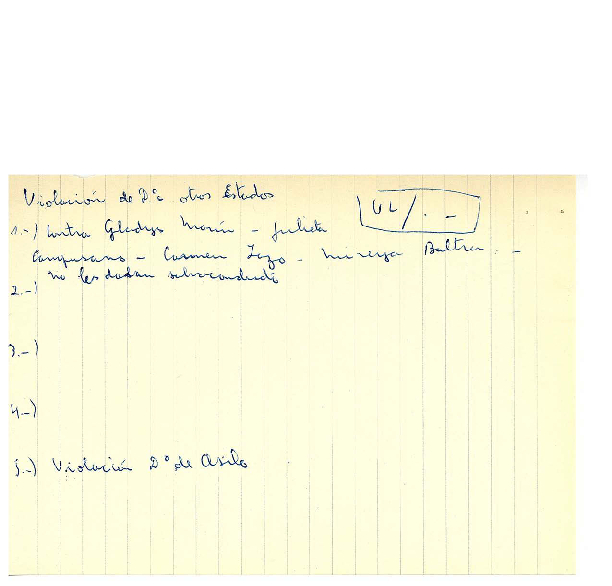 Violación de Dº otros Estados
UL/. -
1.-) Contra Gladys Marín - Julieta
Campusano - Carmen Lazo - Mireya Baltra. -
no les daban salvoconducto
2.-)
3.-)
4.-)
5.-) Violación Dº de Asilo